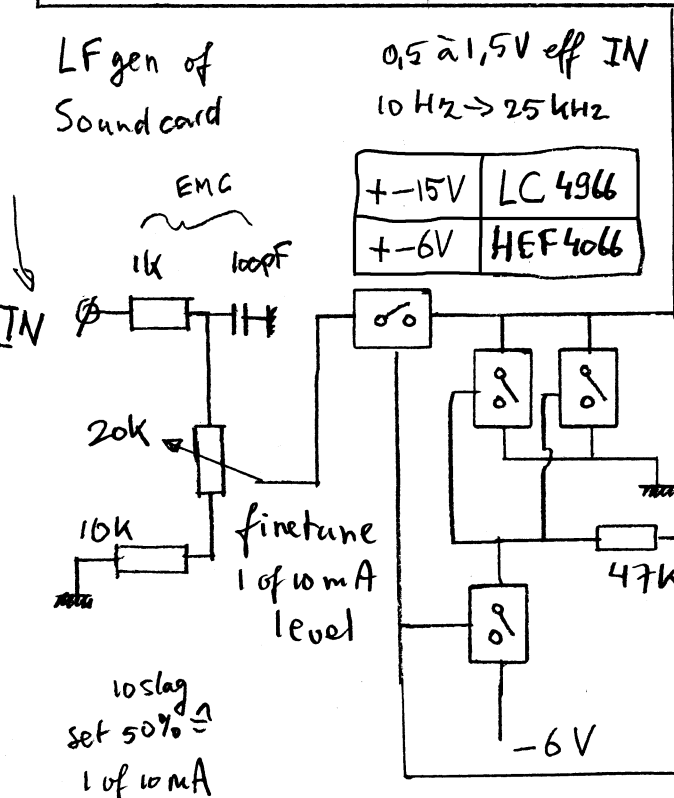 LF gen of
Soundcard
0,5 à 1,5V eff IN
10 Hz → 25 kHz
+-15V LC 4966
+-6V HEF 4066
EMC
1k 100pF
IN
20K
10K
finetune
1 of 10 mA
level
47K
10 slag
set 50% ≙
1 of 10 mA
-6V